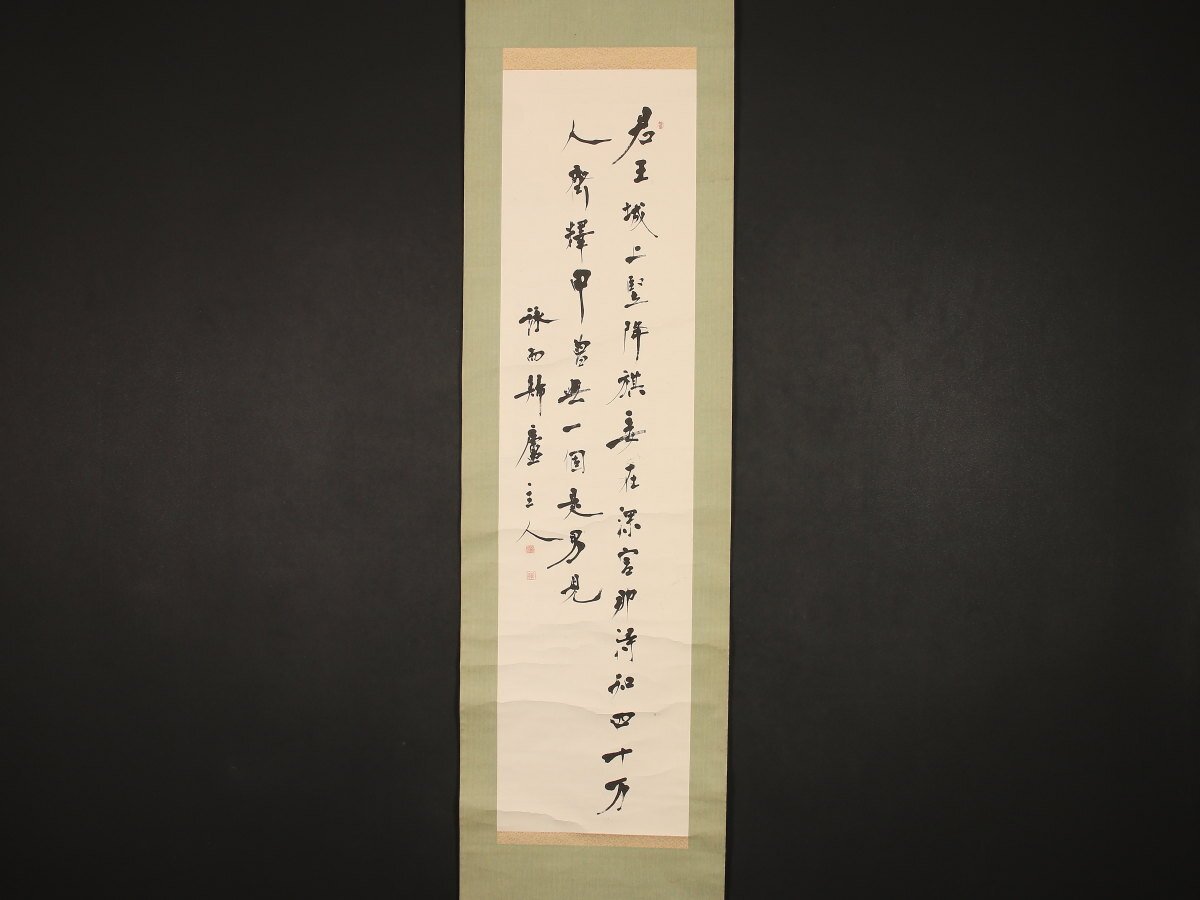 君王城上豎降旗妾在深宮那得知四十万
人齊釋甲曽無一個是男兒
詠而歸廬主人